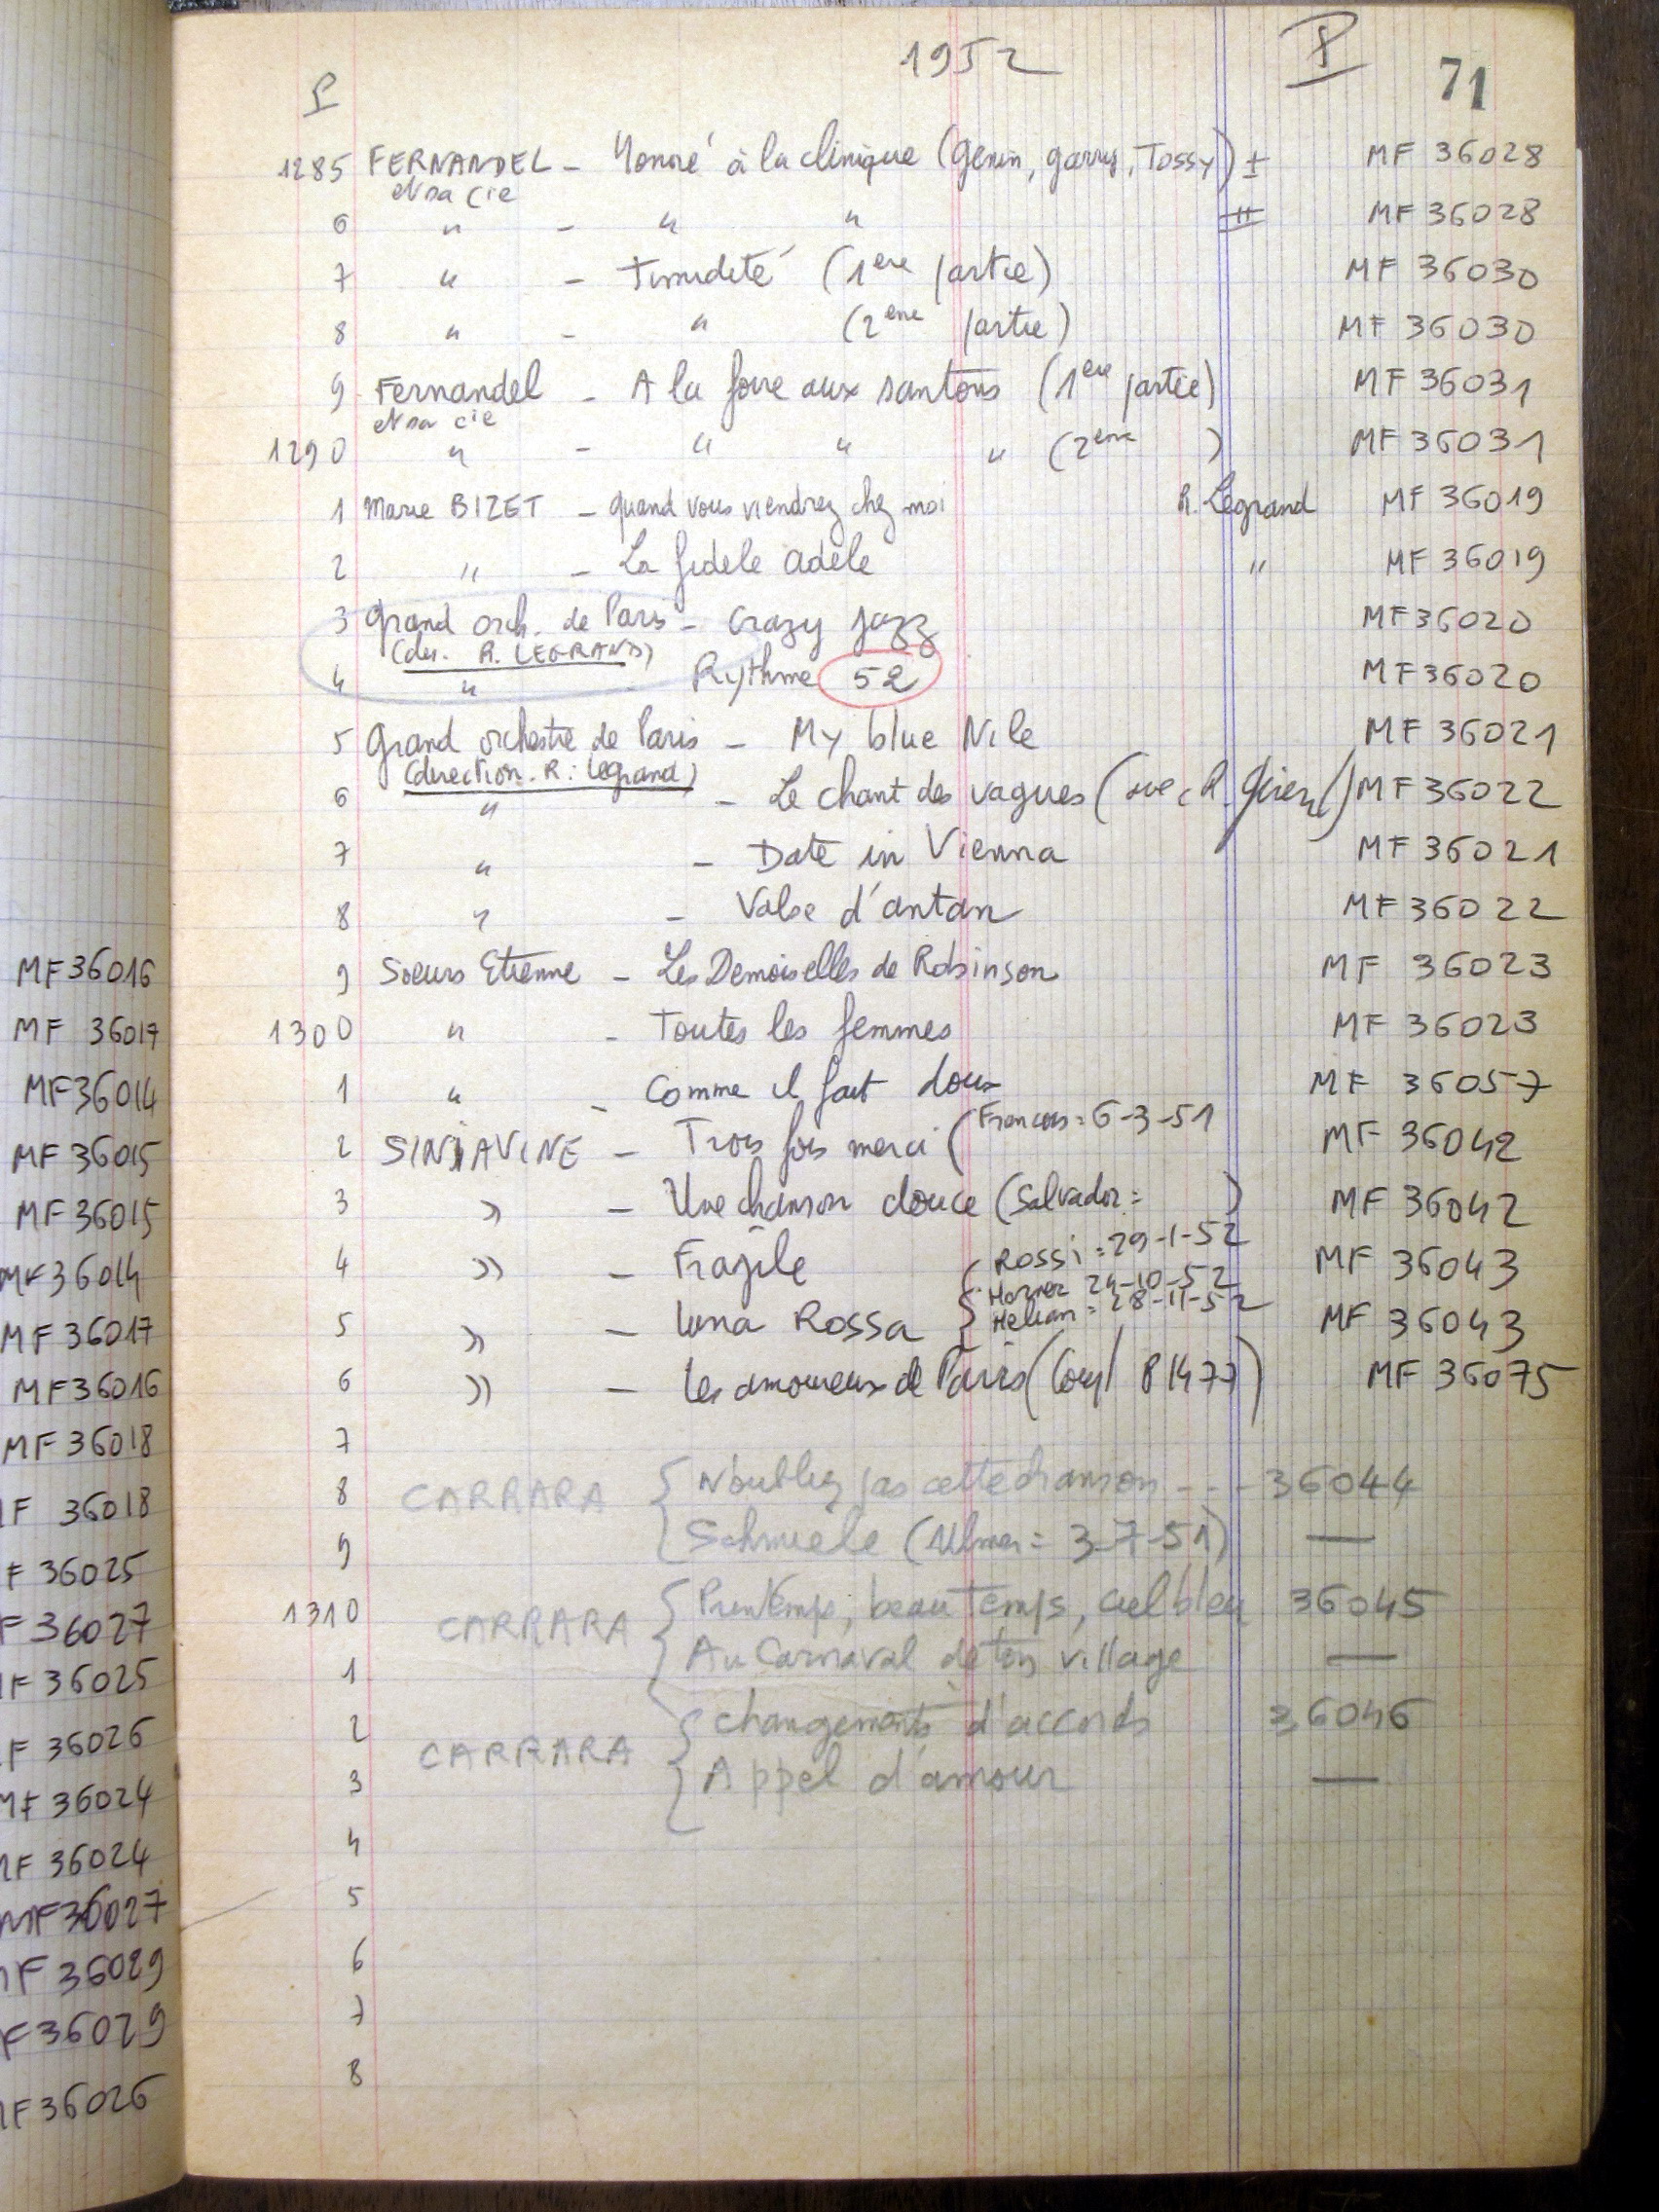 MF36016
MF 36017
MF36014
MF 36015
MF 36015
MF36014
MF 36017
MF36016
MF 36018
F 36018
F 36025
F 36027
F 36025
F 36026
MF 36024
F 36024
MF36027
F 36029
F 36029
F 36026
1952
P
71
P
1285 FERNANDEL - Honoré à la clinique (Genin, garrus, Tossy) I MF 36028
et sa cie
6 " - " " II MF 36028
7 " - Timidité (1ere partie) MF 36030
8 " - " (2eme partie) MF 36030
9 Fernandel - A la foire aux santons (1ere partie) MF 36031
et sa cie
1290 " - " " " (2eme ) MF 36031
1 Marie BIZET - quand vous viendrez chez moi R. Legrand MF 36019
2 " - La fidele adèle " MF 36019
3 Grand orch. de Paris - Crazy jazz MF36020
(dir. R. LEGRAND)
4 " - Rythme 52 MF36020
5 Grand orchestre de Paris - My blue Nile MF 36021
(direction. R. Legrand)
6 " - Le chant des vagues (avec R. ) MF 36022
7 " - Date in Vienna MF 36021
8 " - Valse d'antan MF36022
9 Soeurs Etienne - Les Demoiselles de Robinson MF 36023
1300 " - Toutes les femmes MF 36023
1 " - Comme il fait doux MF 36057
2 SINIAVINE - Trois fois merci (Francois = 6-3-51 MF 36042
3 " - Une chanson douce (Salvador = ) MF 36042
4 " - Fragile (Rossi = 29-1-52 MF 36043
5 " - luna Rossa { 24-10-52 MF 36043
Hélian = 28-11-52
6 " - les amoureux de Paris ( P 1477) MF 36075
7
8 CARRARA { N'oubliez pas cette chanson - - - 36044
9 Schmièle (Ulmer = 3-7-51) —
1310 CARRARA { Printemps, beau temps, ciel bleu 36045
1 Au Carnaval de ton village —
2 CARRARA { changements d'accords 36046
3 Appel d'amour —
4
5
6
7
8